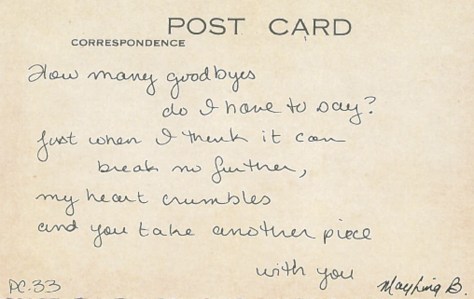 POST CARD
CORRESPONDENCE
How many goodbyes
do I have to say?
Just when I think it can
break no further,
my heart crumbles
and you take another piece
with you
PC.33
B.